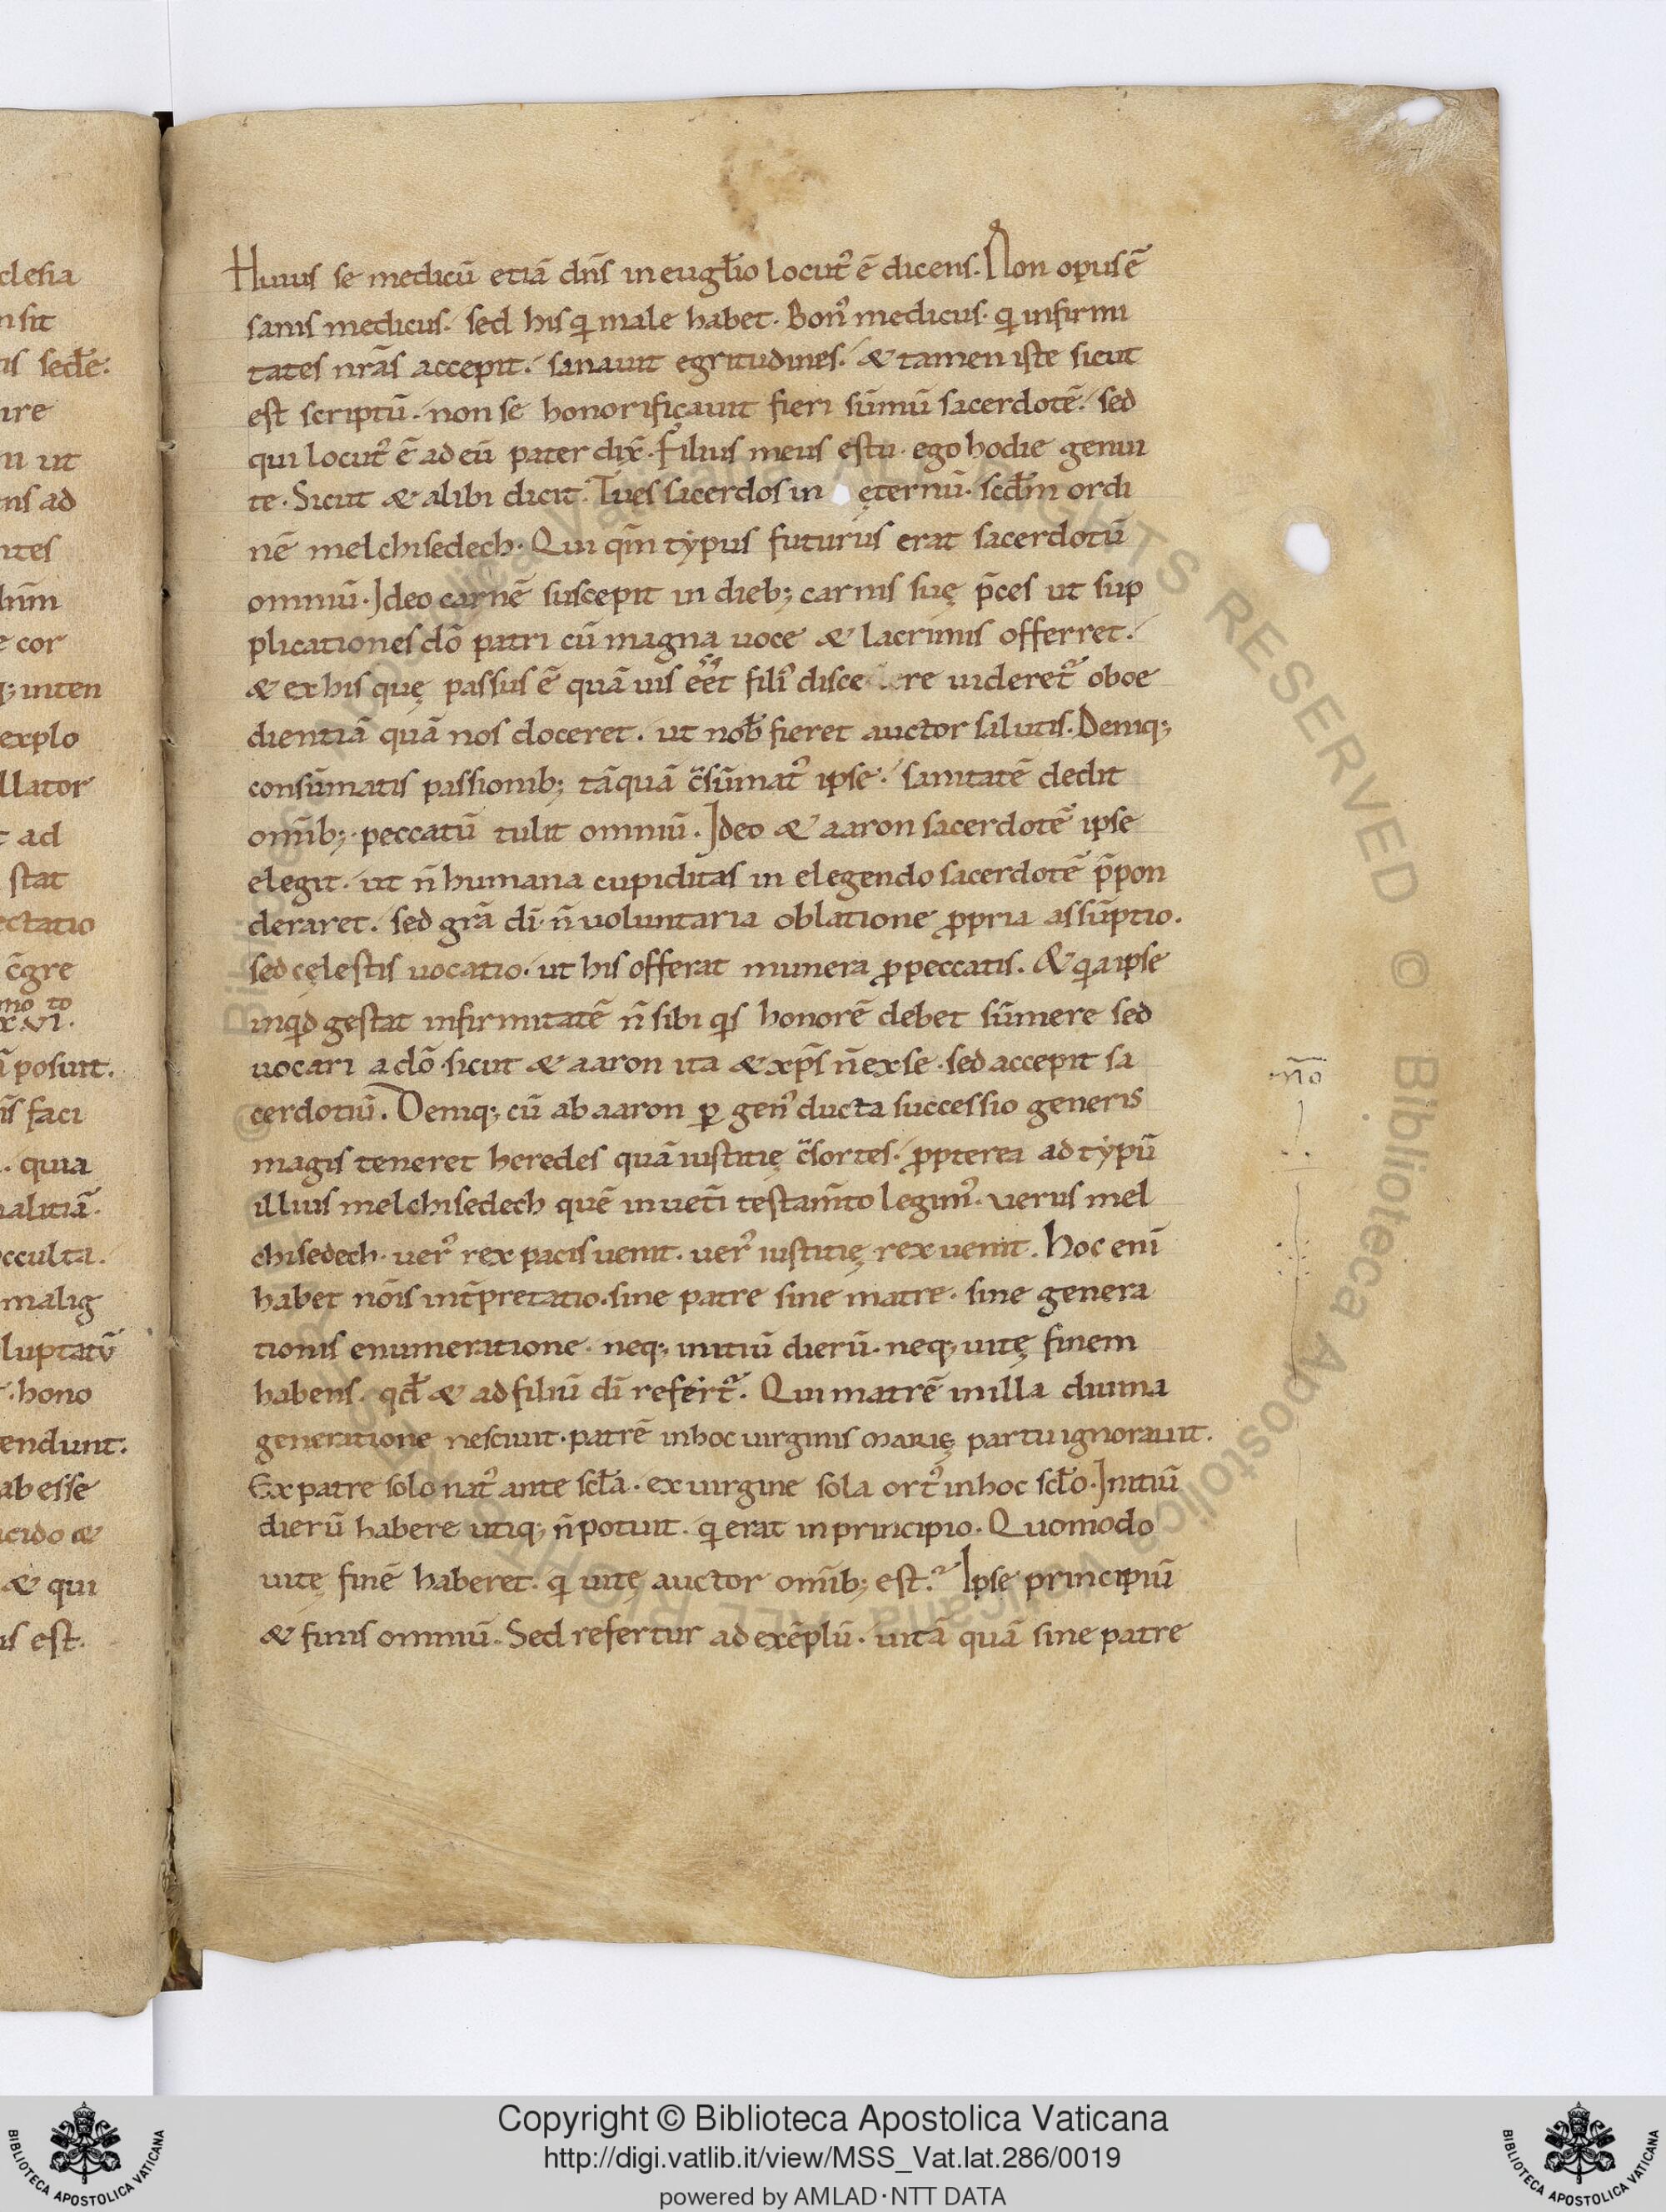 clesia
nsit
is sedłe.
ire
n ut
ns ad
ntes
lnm̄
e cor
q; inten
explo
llator
t ad
stat
ectatio
c̄gre
mo to
x.vi.
ī posuit.
is faci
. quia
alitiā.
cculta.
malig
luptatū
. hono
endunt.
ab esse
cido &
& qui
is est.
Huius se medicū etiā dn̄s in euḡlio locut᾽ ē dicens. Non opus ē
sanis medicus. sed his qi male habet. Bon᾽ medicus. qi infirmi
tates nr̄as accepit. sanauit egritudines. & tamen iste sicut
est scriptū. non se honorificauit fieri sūmū sacerdotē. sed
qui locut᾽ ē ad eū pater dix̄. Filius meus es tu. ego hodie genui
te. Sicut & alibi dicit. Tu es sacerdos in ęternū. scđm ordi
nē melchisedech. Qui qm̄ typus futurus erat sacerdotū
omniū. Ideo carnē suscepit in dieb; carnis suę p̄ces ut sup
plicationes dō patri cū magna uoce & lacrimis offerret.
& ex his quę passus ē quā uis eēt fili᾽ disce re uideret᾽ oboe
dientiā quā nos doceret. ut nob̄ fieret auctor salutis. Deniq;
consūmatis passionib; tāquā c̄sūmat᾽ ipse. sanitatē dedit
omīb; peccatū tulit omniū. Ideo & aaron sacerdotē ipse
elegit. ut n̄ humana cupiditas in elegendo sacerdotē p̄pon
deraret. sed gr̄a dī. n̄ uoluntaria oblatione ꝓpria assūptio.
sed cęlestis uocatio. ut his offerat munera ꝓ peccatis. & qa ipse
inqd gestat infirmitatē n̄ sibi qis honorē debet sūmere sed
uocari a dō. sicut & aaron ita & xp̄s n̄ ex se. sed accepit sa
cerdotiū. Deniq; cū ab aaron ꝑ gen᾽ ducta successio generis
magis teneret heredes quā iustitię c̄sortes. ꝓpterea ad typū
illius melchisedech quē in uet̄i testam̄to legim᾽. uerus mel
chisedech. uer᾽ rex pacis uenit. uer᾽ iustitię rex uenit. hoc enī
habet nōis int̄pretatio. sine patre sine matre. sine genera
tionis enumeratione. neq; initiū dierū. neq; uitę finem
habens. qđ & ad filiū dī refert᾽. Qui matrē in illa diuina
generatione nesciuit. patrē in hoc uirginis marię partu ignorauit.
Ex patre solo nat᾽ ante scła. ex uirgine sola ort᾽ in hoc scło. Initiū
dierū habere utiq; n̄ potuit. qi erat in principio. Quomodo
uitę finē haberet. qi uitę auctor omīb; est.᾽ Ipse principiū
& finis omniū. Sed refertur ad exēplū. uitā quā sine patre
.n̄o
Copyright © Biblioteca Apostolica Vaticana
http://digi.vatlib.it/view/MSS_Vat.lat.286/0019
powered by AMLAD·NTT DATA
BIBLIOTECA APOSTOLICA VATICANA
BIBLIOTECA APOSTOLICA VATICANA
© Biblioteca Apostolica Vaticana ALL RIGHTS RESERVED © Biblioteca Apostolica Vaticana ALL RIGHTS RESERVED